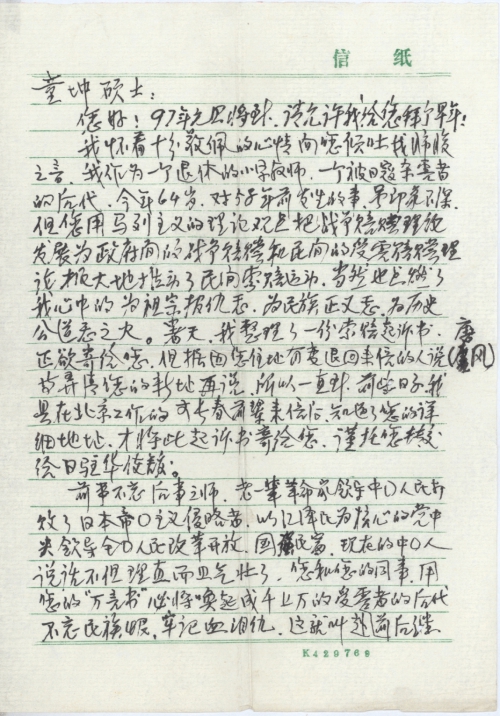 信 纸
童坤硕士：
您好！97年元旦将到、请允许我给您拜个早年！
我怀着十分敬佩的心情向您倾吐我肺腹
之言。我作为一个退休的小学教师，一个被日寇杀害者
的后代，今年64岁，对50多年前发生的事，早印象不深。
但您用马列主义的理论观点把战争赔偿理论
发展为政府间的战争赔偿和民间的受害赔偿理
论，极大地推动了民间索赔运动，当然也点燃了
我心中的为祖宗报仇恨、为民族正义恨、为历史
公道恨之火。暑天，我整理了一份索赔起诉书，
正欲寄给您，但据因您住址有变退回来信的人说(唐风)
等弄清您的新址再说，所以一直到前些日子我
县在北京工作的 长春前辈来信后，知道了您的详
细地址，才将此起诉书寄给您，谨托您转交
给日驻华使馆。
前事不忘后事之师，老一辈革命家领导中口人民打
败了日本帝口主义侵略者，以江泽民为核心的党中
央领导全口人民改革开放，国强民富，现在的中口人
说话不但理直而且气壮了，您和您的同事，用
您的"万言书"必将唤起成千上万的受害者的后代
不忘民族恨，牢记血泪仇，这就叫赴前后继
K429769